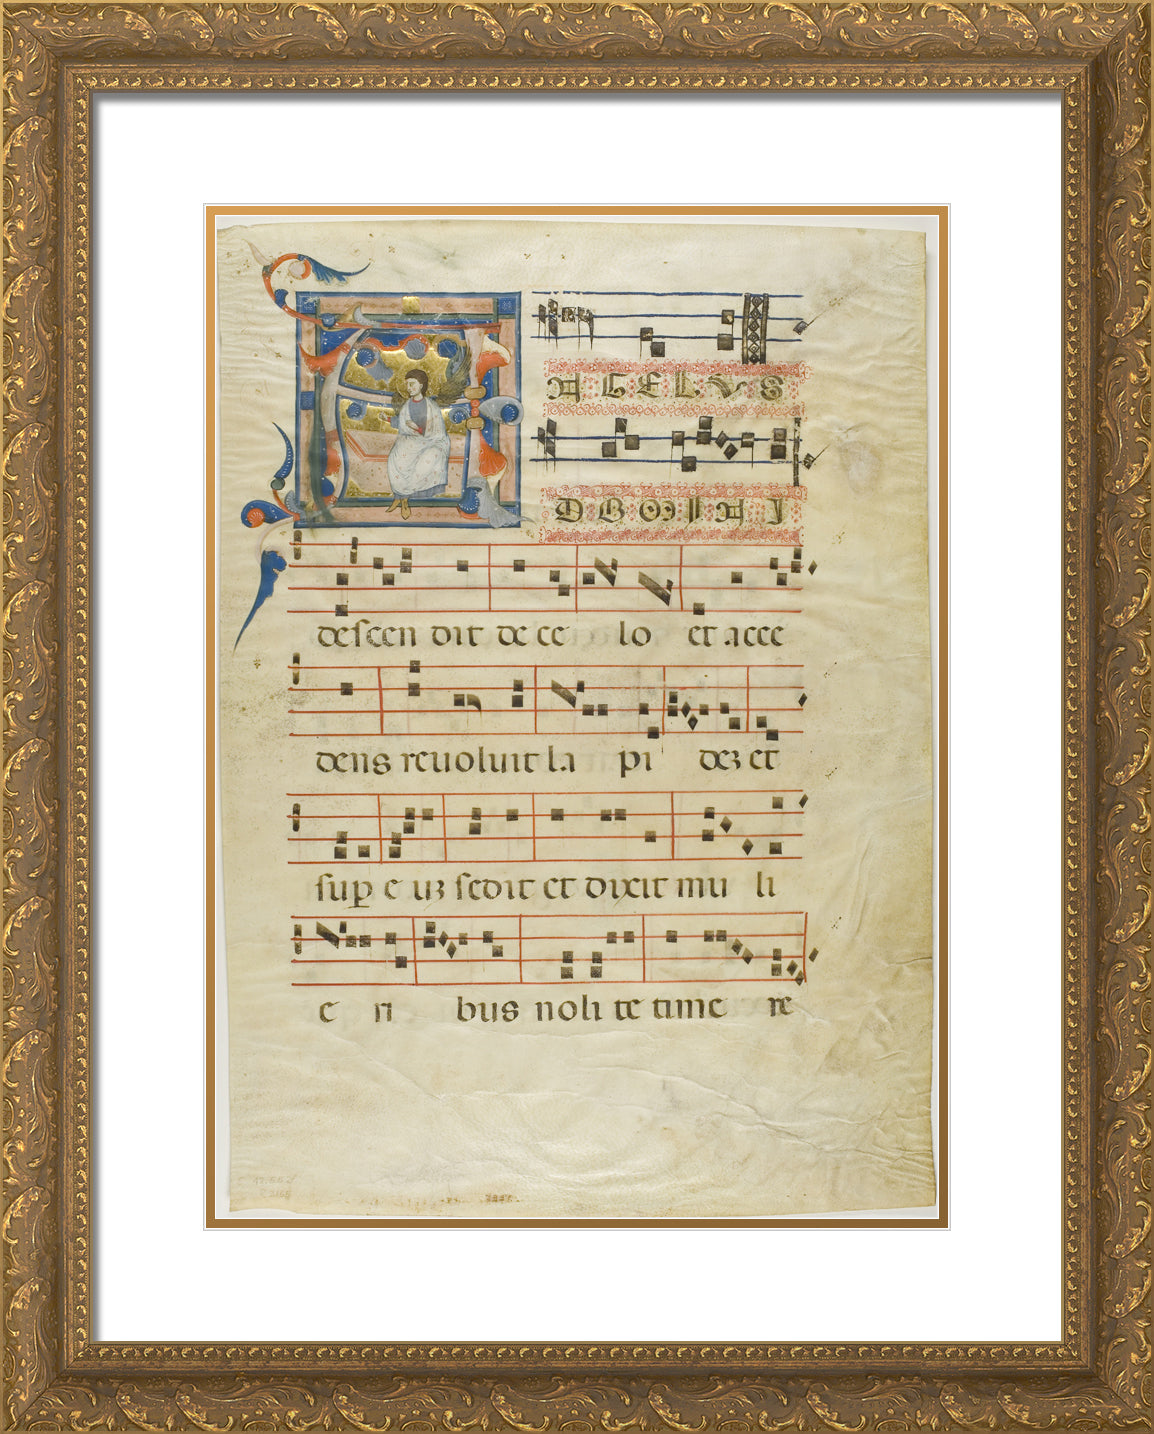 AGELVS
DOMINI
deſcen dit de ce lo et acce
dens reuoluit la pi deʒ et
ſuꝑ e uʒ ſedit et dixit mu li
e ri bus noli te time re